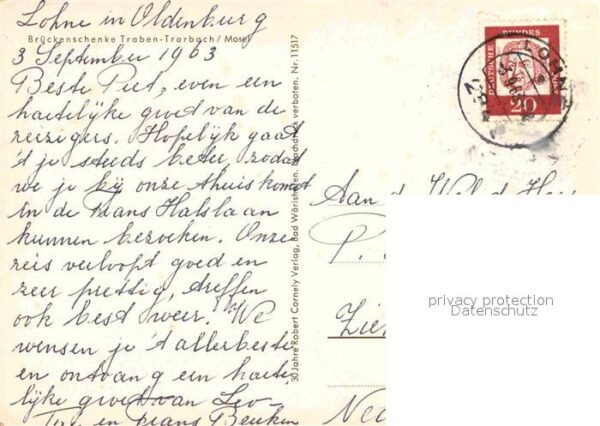 Lohne in Oldenburg
Brückenschenke Traben-Trarbach / Mosel
3 September 1963
Beste Piet, even een
hartelijke groet van de
reizigers. Hopelijk gaat
't je steeds beter, zodat
we je bij onze thuiskomst
in de Frans Halslaan
kunnen bezoeken. Onze
reis verloopt goed en
zeer prettig, treffen
ook best weer! We
wensen je 't allerbeste
en ontvang een harte-
lijke groet van Leo-
en Frans Beuken
30 Jahre Robert Cornely Verlag, Bad Wörishofen. Nachdruck verboten. Nr. 11517
DEUTSCHE BUNDES
20
LOHNE
Aan d. Wel.d. Heer
P.
Zie
Ne
privacy protection
Datenschutz